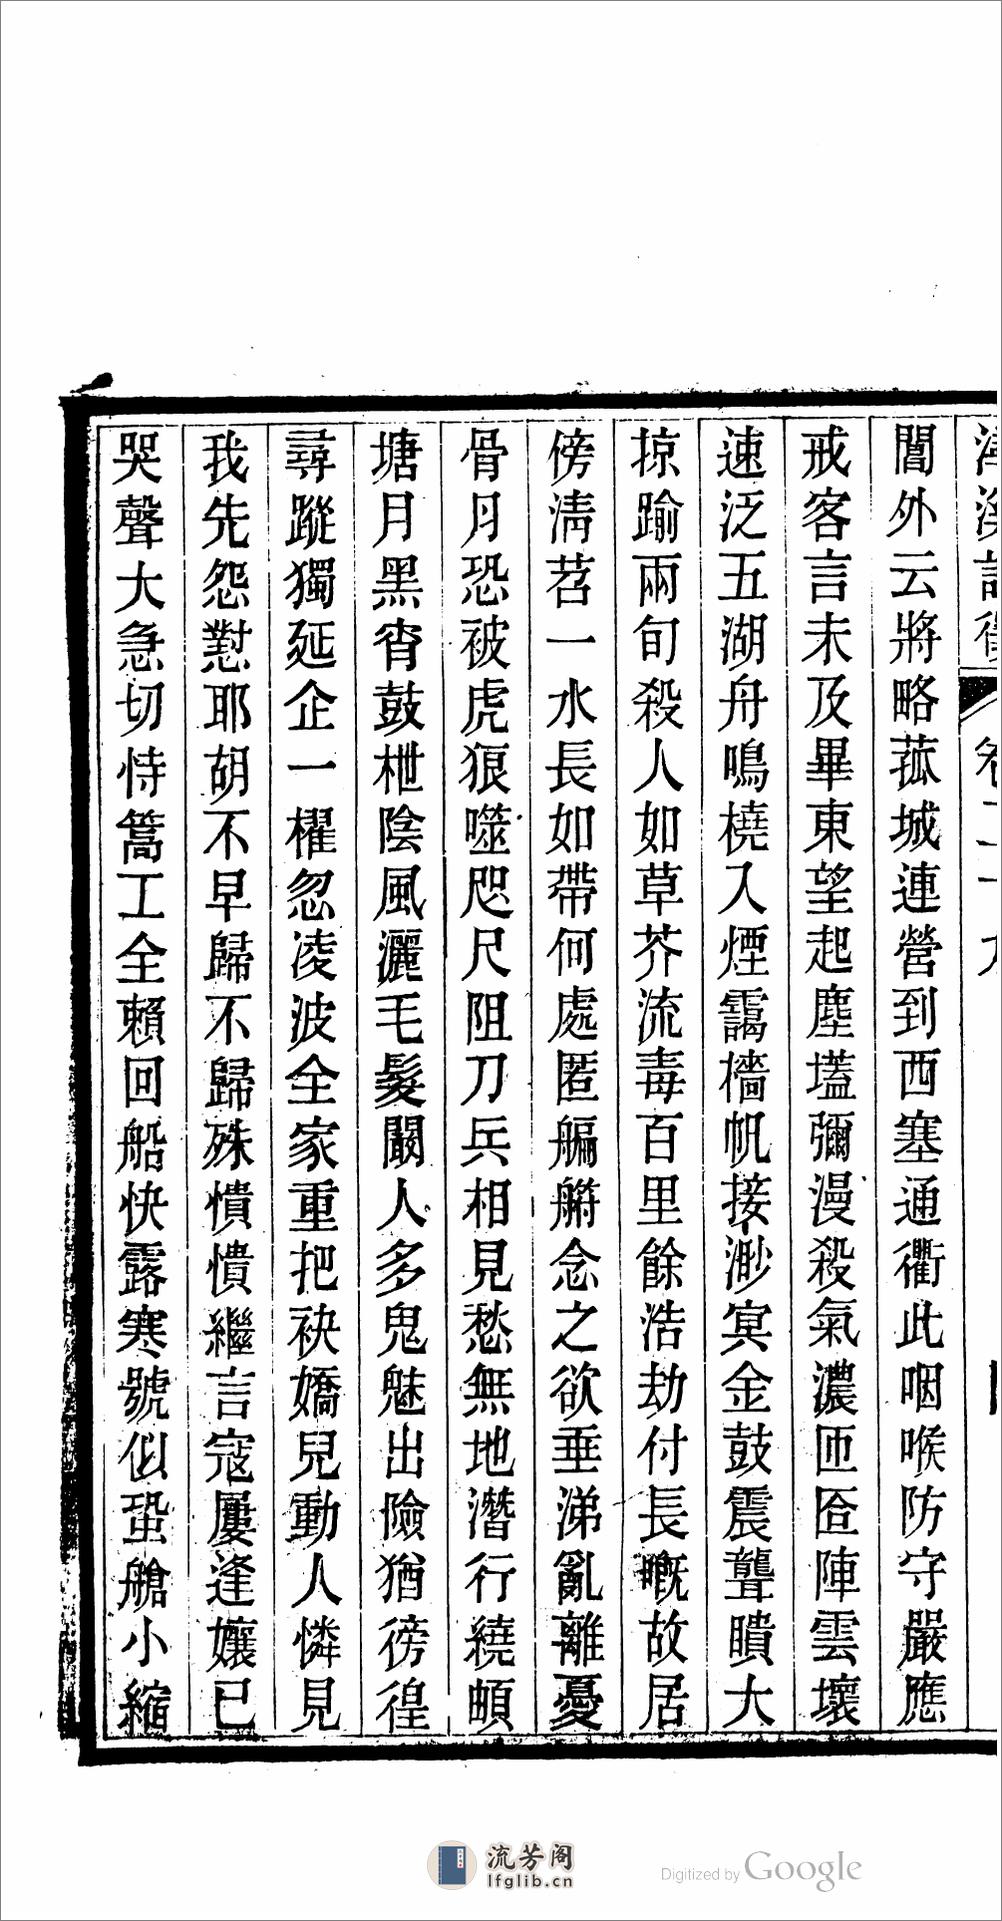 卷二十九
閫外云將略菰城連營到西塞通衢此咽喉防守嚴應
戒客言未及畢東望起塵壒彌漫殺氣濃匝匼陣雲壞
速泛五湖舟鳴橈入煙靄檣帆接渺㝠金鼓震聾聵大
掠踰兩旬殺人如草芥流毒百里餘浩劫付長嘅故居
傍清苕一水長如帶何處匿艑艑念之欲垂涕亂離憂
骨月恐被虎狼噬咫尺阻刀兵相見愁無地潛行繞頔
塘月黑宵鼓枻陰風灑毛髮闞人多鬼魅出險猶徬徨
尋蹤獨延企一櫂忽凌波全家重把袂嬌兒動人憐見
我先怨懟耶胡不早歸不歸殊憒憒繼言寇屢逢孃已
哭聲大急切恃篙工全賴回船快露寒號似蛩艙小縮
流芳阁
lfglib.cn
Digitized by Google